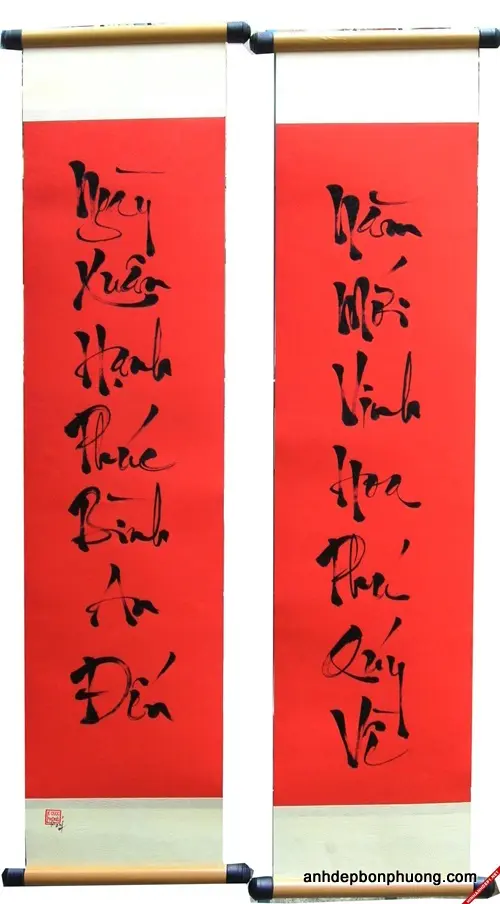 Ngày
Xuân
Hạnh
Phúc
Bình
An
Đến
Năm
Mới
Vinh
Hoa
Phú
Quý
Về
anhdepbonphuong.com